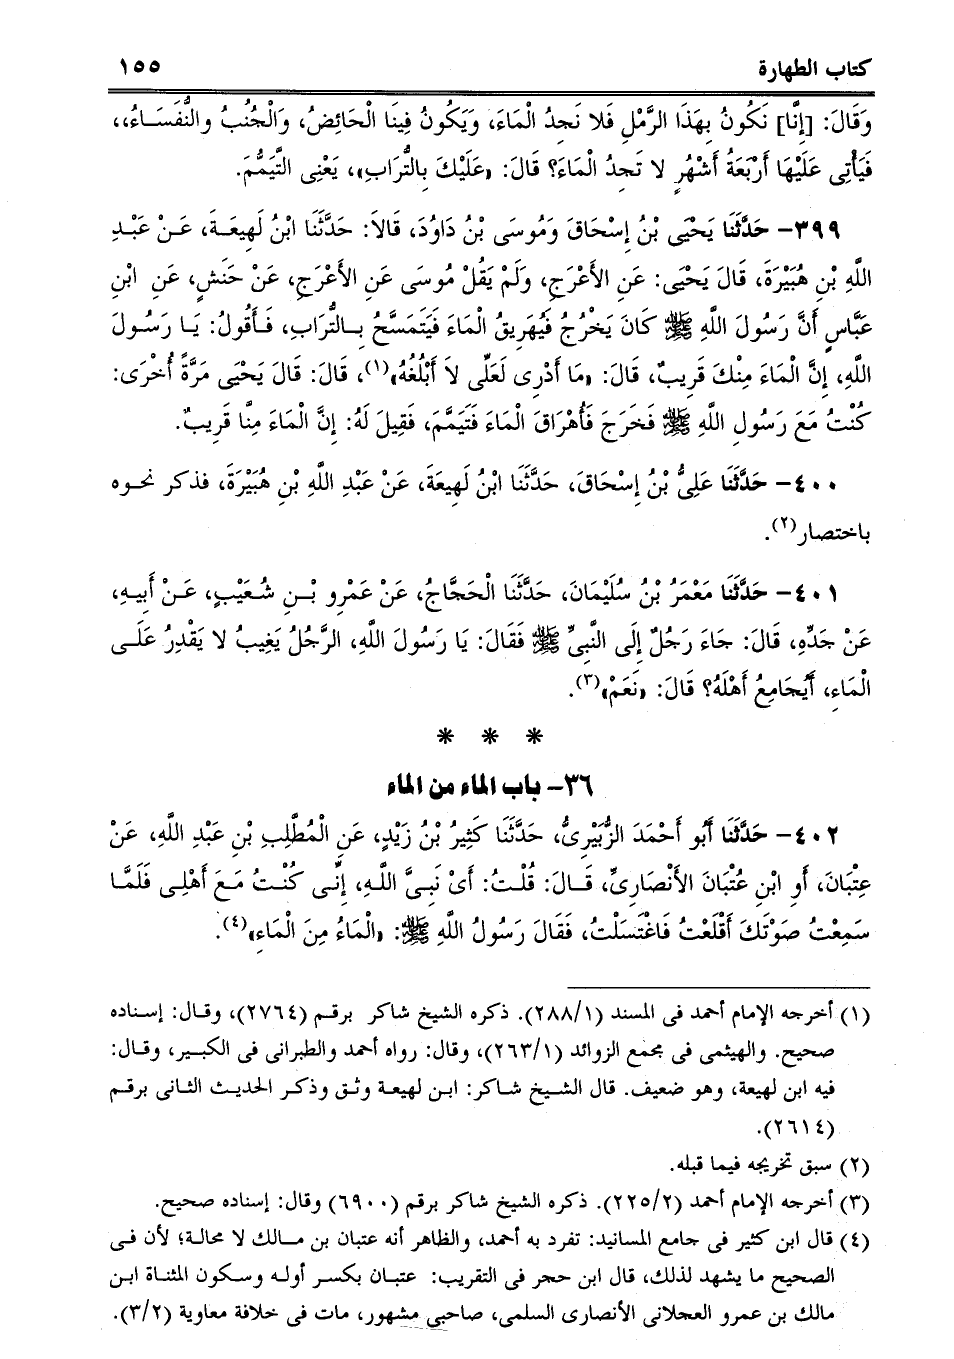 كتاب الطهارة ١٥٥
وَقَالَ: [إِنَّا] نَكُونُ بِهَذَا الرَّمْلِ فَلا نَجِدُ الْمَاءَ، وَيَكُونُ فِينَا الْحَائِضُ، وَالْجُنُبُ والنُّفَسَاءُ،،
فَيَأْتِى عَلَيْهَا أَرْبَعَةُ أَشْهُرٍ لا تَجِدُ الْمَاءَ؟ قَالَ: «عَلَيْكَ بِالتُّرَابِ»، يَعْنِى التَّيَمُّمَ.
٣٩٩- حَدَّثَنَا يَحْيَى بْنُ إِسْحَاقَ وَمُوسَى بْنُ دَاوُدَ، قَالاَ: حَدَّثَنَا ابْنُ لَهِيعَةَ، عَنْ عَبْدِ
اللَّهِ بْنِ هُبَيْرَةَ، قَالَ يَحْيَى: عَنِ الأَعْرَجِ، وَلَمْ يَقُلْ مُوسَى عَنِ الأَعْرَجِ، عَنْ حَنَشٍ، عَنِ ابْنِ
عَبَّاسٍ أَنَّ رَسُولَ اللَّهِ ﷺ كَانَ يَخْرُجُ فَيُهَرِيقُ الْمَاءَ فَيَتَمَسَّحُ بِالتُّرَابِ، فَأَقُولُ: يَا رَسُولَ
اللَّهِ، إِنَّ الْمَاءَ مِنْكَ قَرِيبٌ، قَالَ: «مَا أَدْرِى لَعَلِّى لاَ أَبْلُغُهُ»(١)، قَالَ: قَالَ يَحْيَى مَرَّةً أُخْرَى:
كُنْتُ مَعَ رَسُولِ اللَّهِ ﷺ فَخَرَجَ فَأُهْرَاقَ الْمَاءَ فَتَيَمَّمَ، فَقِيلَ لَهُ: إِنَّ الْمَاءَ مِنَّا قَرِيبٌ.
٤٠٠- حَدَّثَنَا عَلِىُّ بْنُ إِسْحَاقَ، حَدَّثَنَا ابْنُ لَهِيعَةَ، عَنْ عَبْدِ اللَّهِ بْنِ هُبَيْرَةَ، فذكر نحوه
باختصار(٢).
٤٠١- حَدَّثَنَا مَعْمَرُ بْنُ سُلَيْمَانَ، حَدَّثَنَا الْحَجَّاجُ، عَنْ عَمْرِو بْنِ شُعَيْبٍ، عَنْ أَبِيهِ،
عَنْ جَدِّهِ، قَالَ: جَاءَ رَجُلٌ إِلَى النَّبِىِّ ﷺ فَقَالَ: يَا رَسُولَ اللَّهِ، الرَّجُلُ يَغِيبُ لا يَقْدِرُ عَلَى
الْمَاءِ، أَيُجَامِعُ أَهْلَهُ؟ قَالَ: «نَعَمْ»(٣).
* * *
٣٦- باب الماء من الماء
٤٠٢- حَدَّثَنَا أَبُو أَحْمَدَ الزُّبَيْرِىُّ، حَدَّثَنَا كَثِيرُ بْنُ زَيْدٍ، عَنِ الْمُطَّلِبِ بْنِ عَبْدِ اللَّهِ، عَنْ
عِتْبَانَ، أَوِ ابْنِ عُتْبَانَ الأَنْصَارِىِّ، قَالَ: قُلْتُ: أَىْ نَبِىَّ اللَّهِ، إِنِّى كُنْتُ مَعَ أَهْلِى فَلَمَّا
سَمِعْتُ صَوْتَكَ أَقْلَعْتُ فَاغْتَسَلْتُ، فَقَالَ رَسُولُ اللَّهِ ﷺ: «الْمَاءُ مِنَ الْمَاءِ»(٤).
(١) أخرجه الإمام أحمد فى المسند (٢٨٨/١). ذكره الشيخ شاكر برقم (٢٧٦٤)، وقال: إسناده
صحيح. والهيثمى فى مجمع الزوائد (٢٦٣/١)، وقال: رواه أحمد والطبرانى فى الكبير، وقال:
فيه ابن لهيعة، وهو ضعيف. قال الشيخ شاكر: ابن لهيعة وثق وذكر الحديث الثانى برقم
(٢٦١٤).
(٢) سبق تخريجه فيما قبله.
(٣) أخرجه الإمام أحمد (٢٢٥/٢). ذكره الشيخ شاكر برقم (٦٩٠٠) وقال: إسناده صحيح.
(٤) قال ابن كثير فى جامع المسانيد: تفرد به أحمد، والظاهر أنه عتبان بن مالك لا محالة؛ لأن فى
الصحيح ما يشهد لذلك، قال ابن حجر فى التقريب: عتبان بكسر أوله وسكون المثناة ابن
مالك بن عمرو العجلانى الأنصارى السلمى، صاحبى مشهور، مات فى خلافة معاوية (٣/٢).